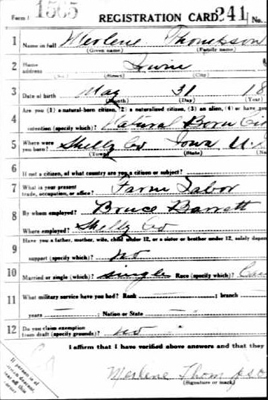 Form 1 1565 REGISTRATION CARD 241
1 Name in full Merlene Thompson
(Given name) (Family name)
2 Home address Irwin
(No.) (Street) (City)
3 Date of birth May 31 18
(Month) (Day)
Are you (1) a natural-born citizen, (2) a naturalized citizen, (3) an alien, (4) or have you
4 intention (specify which)? Natural Born Cit
5 Where were you born? Shelby Co Iowa U.S
(Town) (State) (Na
6 If not a citizen, of what country are you a citizen or subject?
7 What is your present trade, occupation, or office? Farm Labor
8 By whom employed? Bruce Barrett
Where employed? Shelby Co
9 Have you a father, mother, wife, child under 12, or a sister or brother under 12, solely depend
support (specify which)? no
10 Married or single (which)? single Race (specify which)? Cau
11 What military service have you had? Rank branch
years Nation or State
12 Do you claim exemption from draft (specify grounds)? no
I affirm that I have verified above answers and that they
Merlene Thompson
(Signature or mark)
If person is of